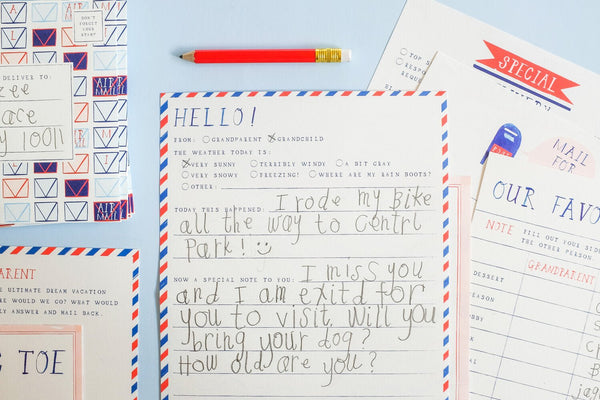 DON'T
FORGET
YOUR
STAMP
DELIVER TO:
zee
ace
y 10011
AIR
MAIL
HELLO!
FROM: GRANDPARENT GRANDCHILD
THE WEATHER TODAY IS:
VERY SUNNY TERRIBLY WINDY A BIT GRAY
VERY SNOWY FREEZING! WHERE ARE MY RAIN BOOTS?
OTHER:
TODAY THIS HAPPENED: I rode my Bike
all the way to Centrl
Park!
NOW A SPECIAL NOTE TO YOU: I miss you
and I am exitd for
you to visit. Will you
bring your dog?
How old are you?
ARENT
E ULTIMATE DREAM VACATION
RE WOULD WE GO? WHAT WOULD
LY ANSWER AND MAIL BACK.
G TOE
TOP S
RESPO
REQU
SPECIAL
MAIL
FOR
OUR FAVO
NOTE FILL OUT YOUR SID
THE OTHER PERSON.
GRANDPARENT
DESSERT
EASON
BBY